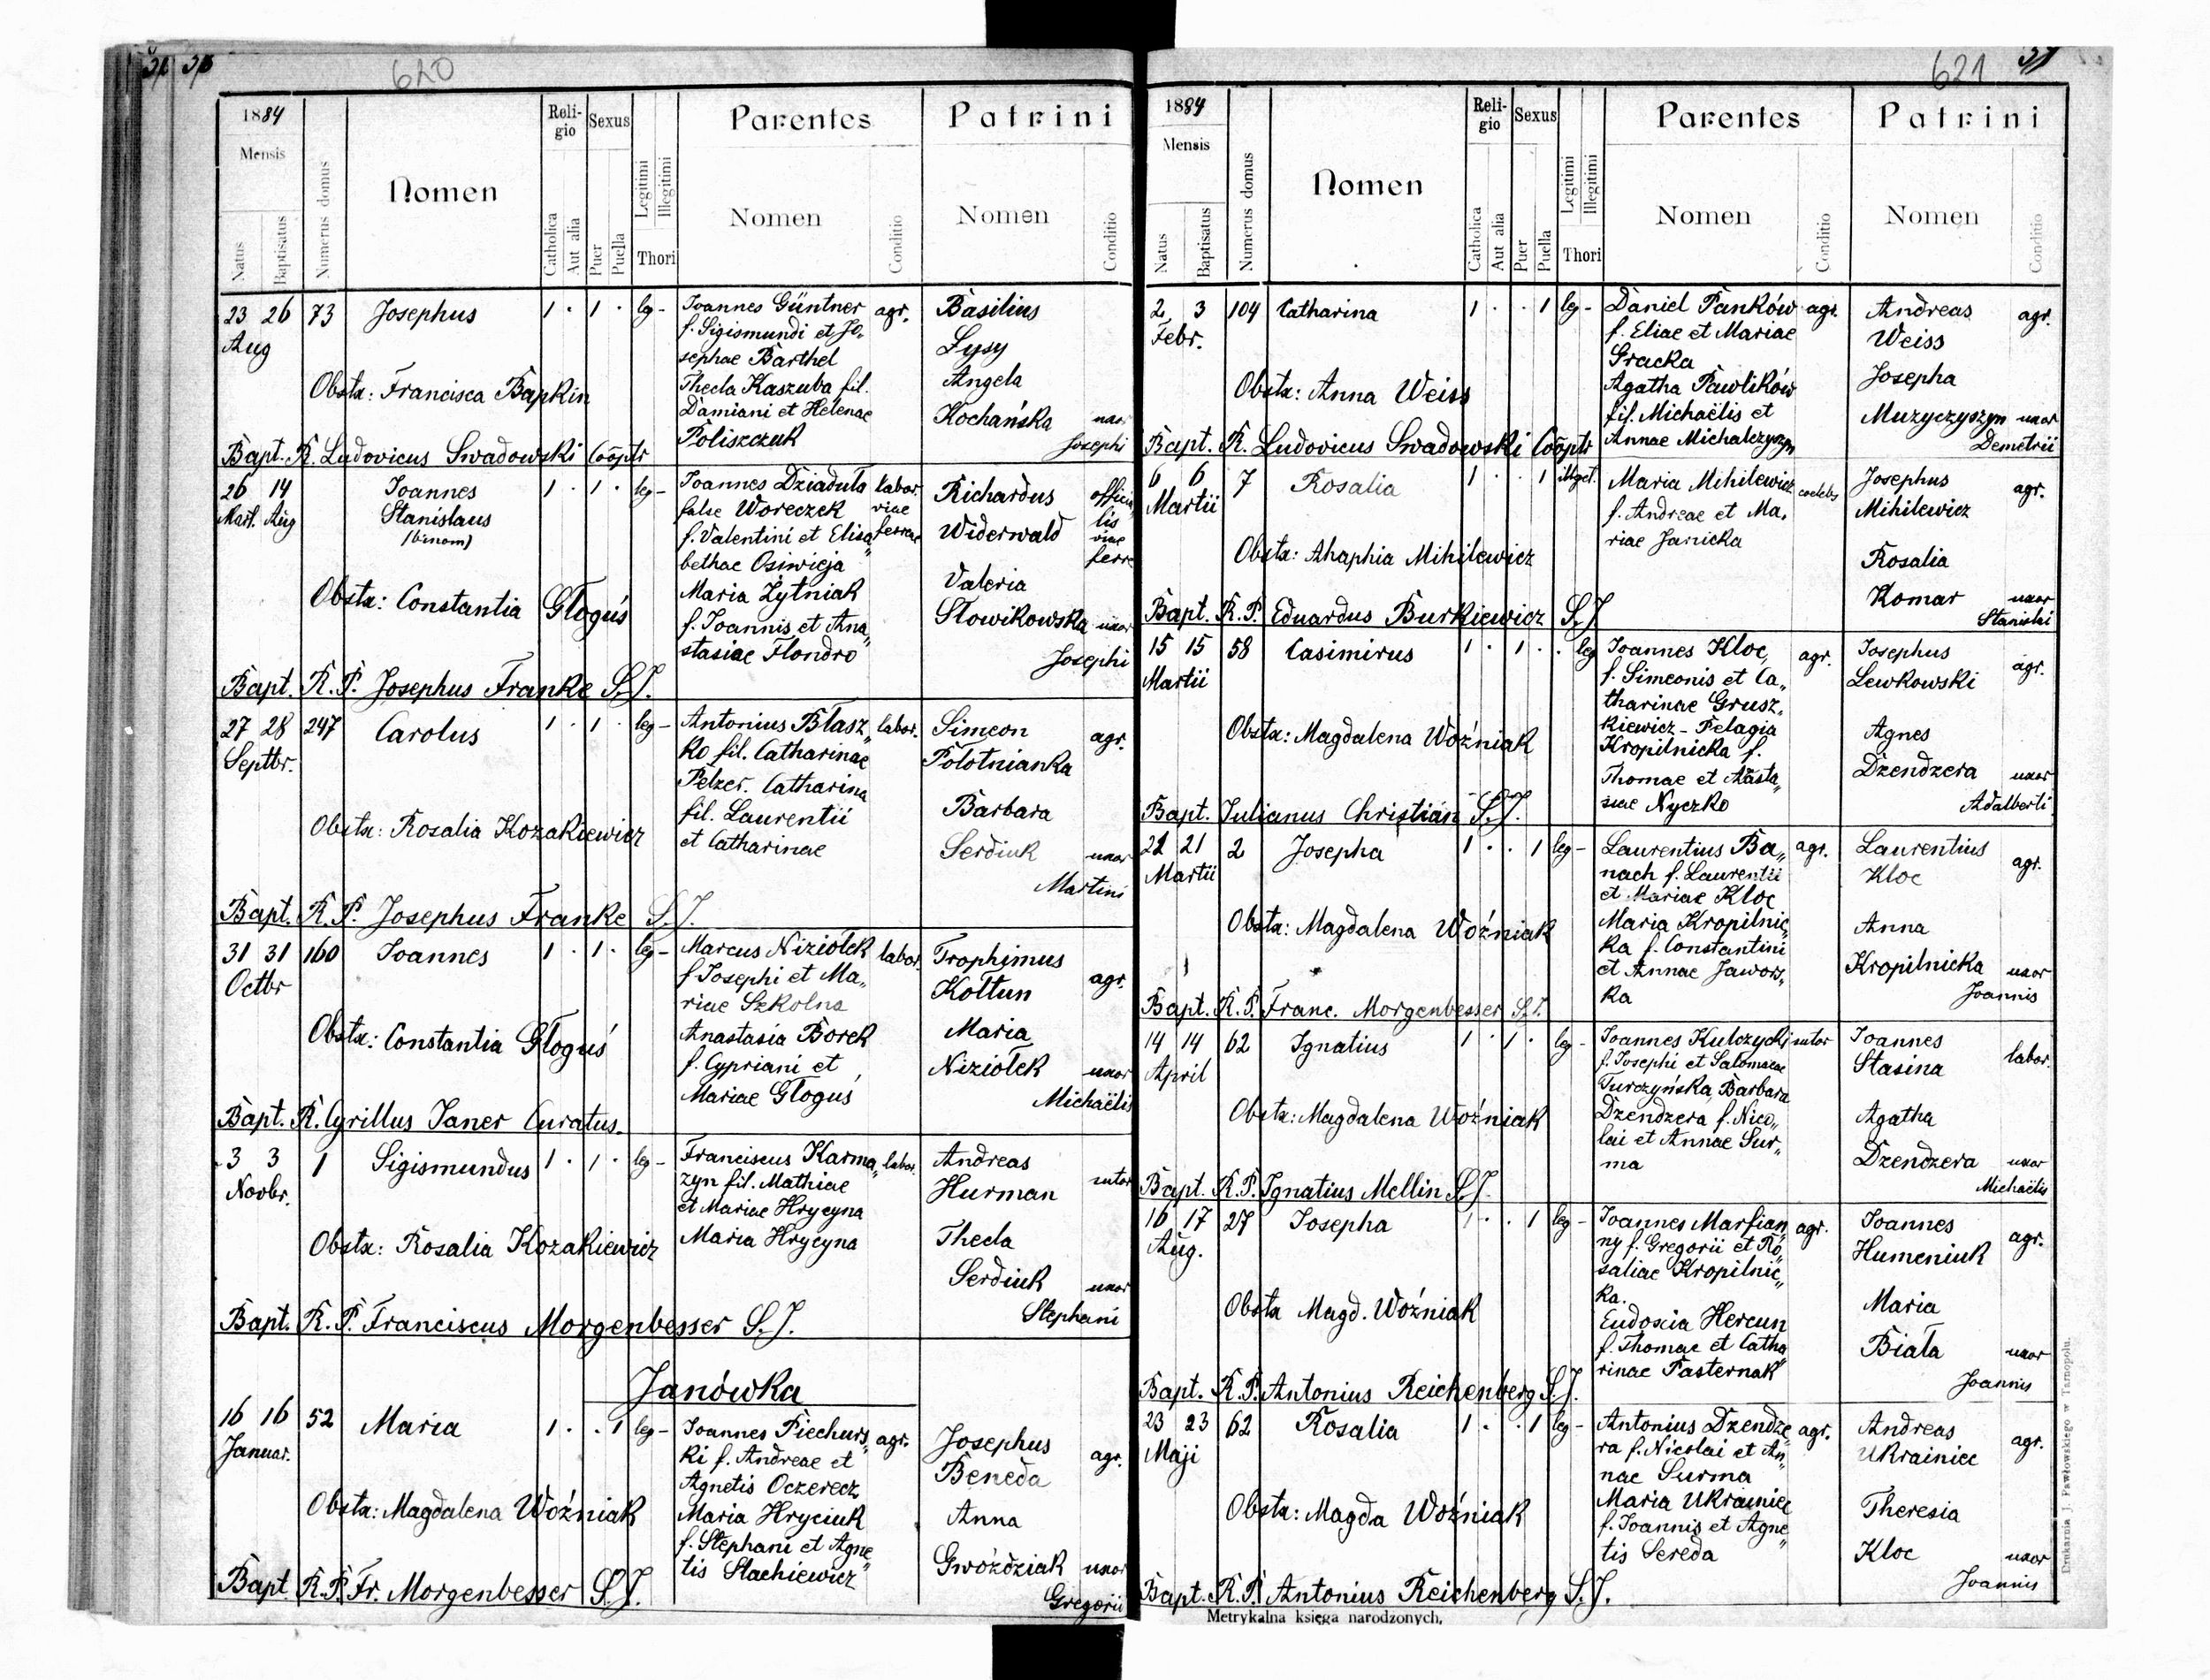 620
1884
Mensis
Natus
Baptisatus
Numerus domus
Nomen
Religio
Catholica
Aut alia
Sexus
Puer
Puella
Legitimi
Illegitimi
Thori
Parentes
Nomen
Conditio
Patrini
Nomen
Conditio
23 26 73 Josephus 1 · 1 · leg-
Aug
Joannes Güntner agr.
f. Sigismundi et Jo„
sephae Barthel
Thecla Kaszuba fil.
Damiani et Helenae
Poliszczuk
Basilius
Lysy
Angela
Kochańska uxor
Josephi
Obstx: Francisca Bapkin
Bapt. R. Ludovicus Swadowski Coöptr
26 14 Joannes 1 · 1 · leg-
Mart. Aug Stanislaus
(binom)
Joannes Dziaduła labor.
false Woreczek viae
f. Valentini et Elisa„ ferrae
bethae Osiwieja
Maria Żytniak
f. Joannis et Ana„
stasiae Flondro
Richardus officia„
Widerwald lis
viae
ferre
Valeria
Słowikowska uxor
Josephi
Obstx: Constantia Głoguś
Bapt. R. P. Josephus Franke S.J.
27 28 247 Carolus 1 · 1 · leg-
Septbr.
Antonius Błasz„ labor.
ko fil. Catharinae
Pelzer. Catharina
fil. Laurentii
et Catharinae
Simeon agr.
Połotnianka
Barbara
Serdiuk uxor
Martini
Obstx: Rosalia Kozakiewicz
Bapt. R. P. Josephus Franke S.J.
31 31 160 Joannes 1 · 1 · leg-
Octbr
Marcus Niziołek labor.
f Josephi et Ma„
riae Szkolna
Anastasia Borek
f. Cypriani et
Mariae Głoguś
Trophimus
Kołtun agr.
Maria
Niziołek uxor
Michaëlis
Obstx: Constantia Głoguś
Bapt. R. Cyrillus Janer Curatus.
3 3 1 Sigismundus 1 · 1 · leg-
Novbr.
Franciscus Karma„ labor.
zyn fil. Mathiae
et Mariae Hrycyna
Maria Hrycyna
Andreas
Hurman sutor
Thecla
Serdiuk uxor
Stephani
Obstx: Rosalia Kozakiewicz
Bapt. R. P. Franciscus Morgenbesser S.J.
Janówka
16 16 52 Maria 1 · · 1 leg-
Januar.
Joannes Piechurs„ agr.
ki f. Andreae et
Agnetis Oczerecz
Maria Hryciuk
f. Stephani et Agne„
tis Stachiewicz
Josephus agr.
Beneda
Anna
Gwoździak uxor
Gregorii
Obstx: Magdalena Woźniak
Bapt. R. P. Fr. Morgenbesser S.J.
621 37
1884
Mensis
Natus
Baptisatus
Numerus domus
Nomen
Religio
Catholica
Aut alia
Sexus
Puer
Puella
Legitimi
Illegitimi
Thori
Parentes
Nomen
Conditio
Patrini
Nomen
Conditio
2 3 104 Catharina 1 · · 1 leg-
Febr.
Daniel Panków agr.
f. Eliae et Mariae
Gracka
Agatha Pawlików
fil. Michaëlis et
Annae Michalczyszyn
Andreas agr.
Weiss
Josepha
Muzyczyszyn uxor
Demetrii
Obstx: Anna Weiss
Bapt. R. Ludovicus Swadowski Coöptr
6 6 7 Rosalia 1 · · 1 illegit.
Martii
Maria Mihilewicz coelebs
f. Andreae et Ma„
riae Janicka
Josephus agr.
Mihilewicz
Rosalia
Komar uxor
Stanislai
Obstx: Ahaphia Mihilewicz
Bapt. R. P. Eduardus Burkiewicz S.J.
15 15 58 Casimirus 1 · 1 · · leg
Martii
Joannes Kloc, agr.
f. Simeonis et Ca„
tharinae Grusz„
kiewicz - Pelagia
Kropilnicka f.
Thomae et Aasta„
siae Nyczko
Josephus agr.
Lewkowski
Agnes
Dzendzera uxor
Adalberti
Obstx: Magdalena Woźniak
Bapt. Julianus Christian S.J.
21 21 2 Josepha 1 · · 1 leg-
Martii
Laurentius Ba„ agr.
nach f. Laurentii
et Mariae Kloc
Maria Kropilnic„
ka f. Constantini
et Annae Jawors„
ka
Laurentius agr.
Kloc
Anna
Kropilnicka uxor
Joannis
Obstx: Magdalena Woźniak
Bapt. R. P. Franc. Morgenbesser S.J.
14 14 62 Ignatius 1 · 1 · leg-
April
Joannes Kulczycki sutor
f. Josephi et Salomeae
Turczyńska Barbara
Dzendzera f. Nico„
lai et Annae Sur„
ma
Joannes labor.
Stasina
Agatha
Dzendzera uxor
Michaëlis
Obstx: Magdalena Woźniak
Bapt. R. P. Ignatius Mellin S.J.
16 17 27 Josepha 1 · · 1 leg-
Aug.
Joannes Marfian„ agr.
ny f. Gregorii et Ro„
saliae Kropilnic„
ka.
Eudoxia Hercun
f. Thomae et Catha„
rinae Pasternak
Joannes agr.
Humeniuk
Maria
Biała uxor
Joannis
Obstx Magd. Woźniak
Bapt. R. P. Antonius Reichenberg S.J.
23 23 62 Rosalia 1 · · 1 leg-
Maji
Antonius Dzendze„ agr.
ra f. Nicolai et An„
nae Surma
Maria Ukrainiec
f. Joannis et Agne„
tis Sereda
Andreas agr.
Ukrainiec
Theresia
Kloc uxor
Joannis
Obstx: Magda Woźniak
Bapt. R. P. Antonius Reichenberg S.J.
Metrykalna księga narodzonych,
Drukarnia J. Pawłowskiego w Tarnopolu.